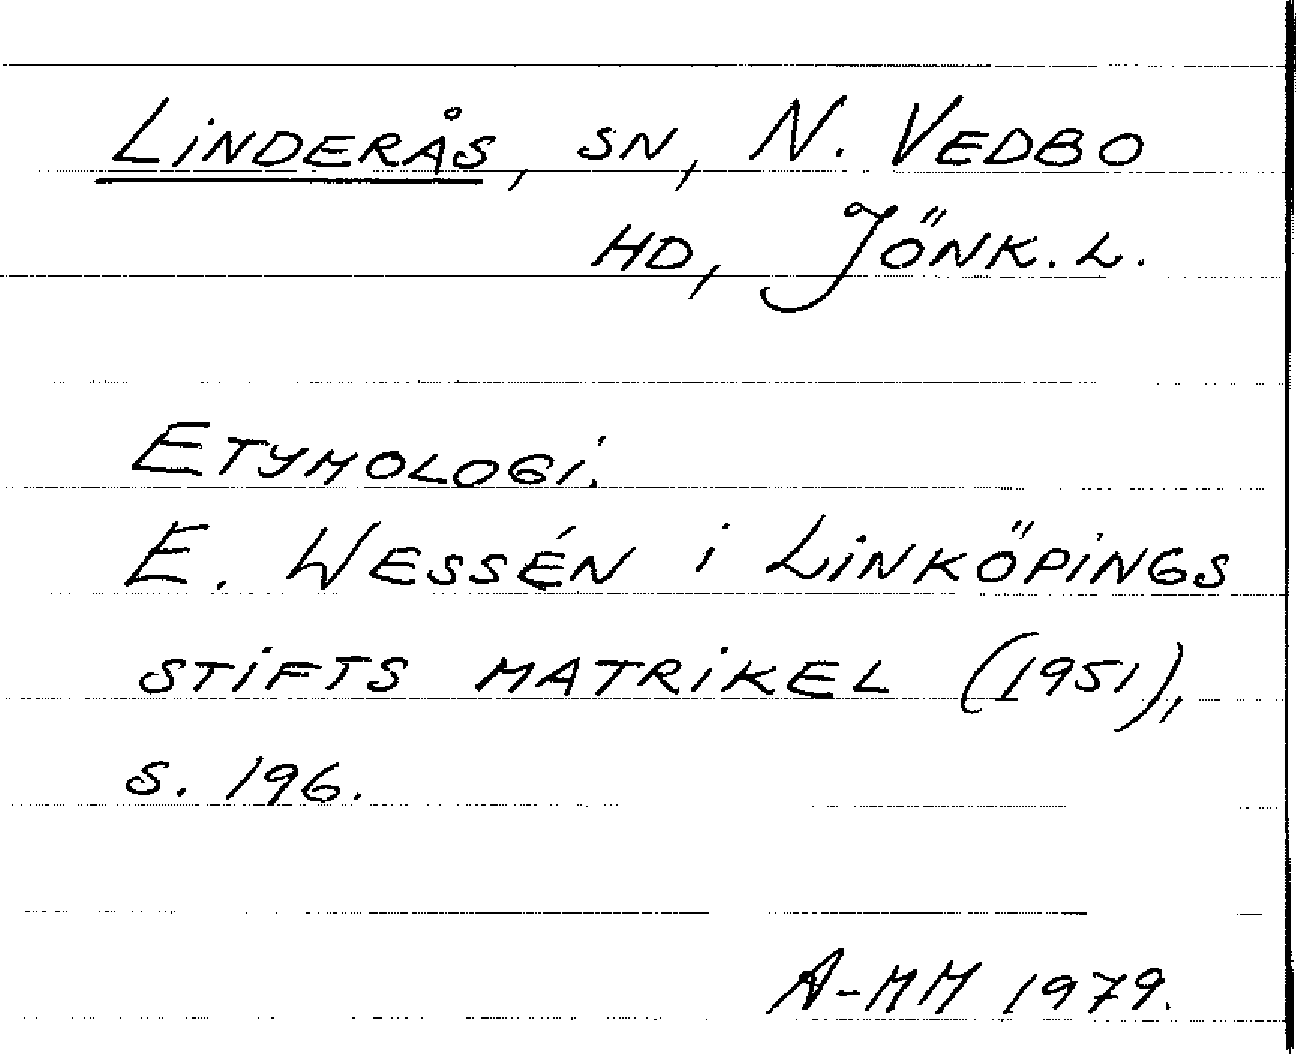 LINDERÅS, SN, N. VEDBO
HD, JÖNK. L.
ETYMOLOGI.
E. WESSÉN I LINKÖPINGS
STIFTS MATRIKEL (1951),
S. 196.
A-MM 1979.